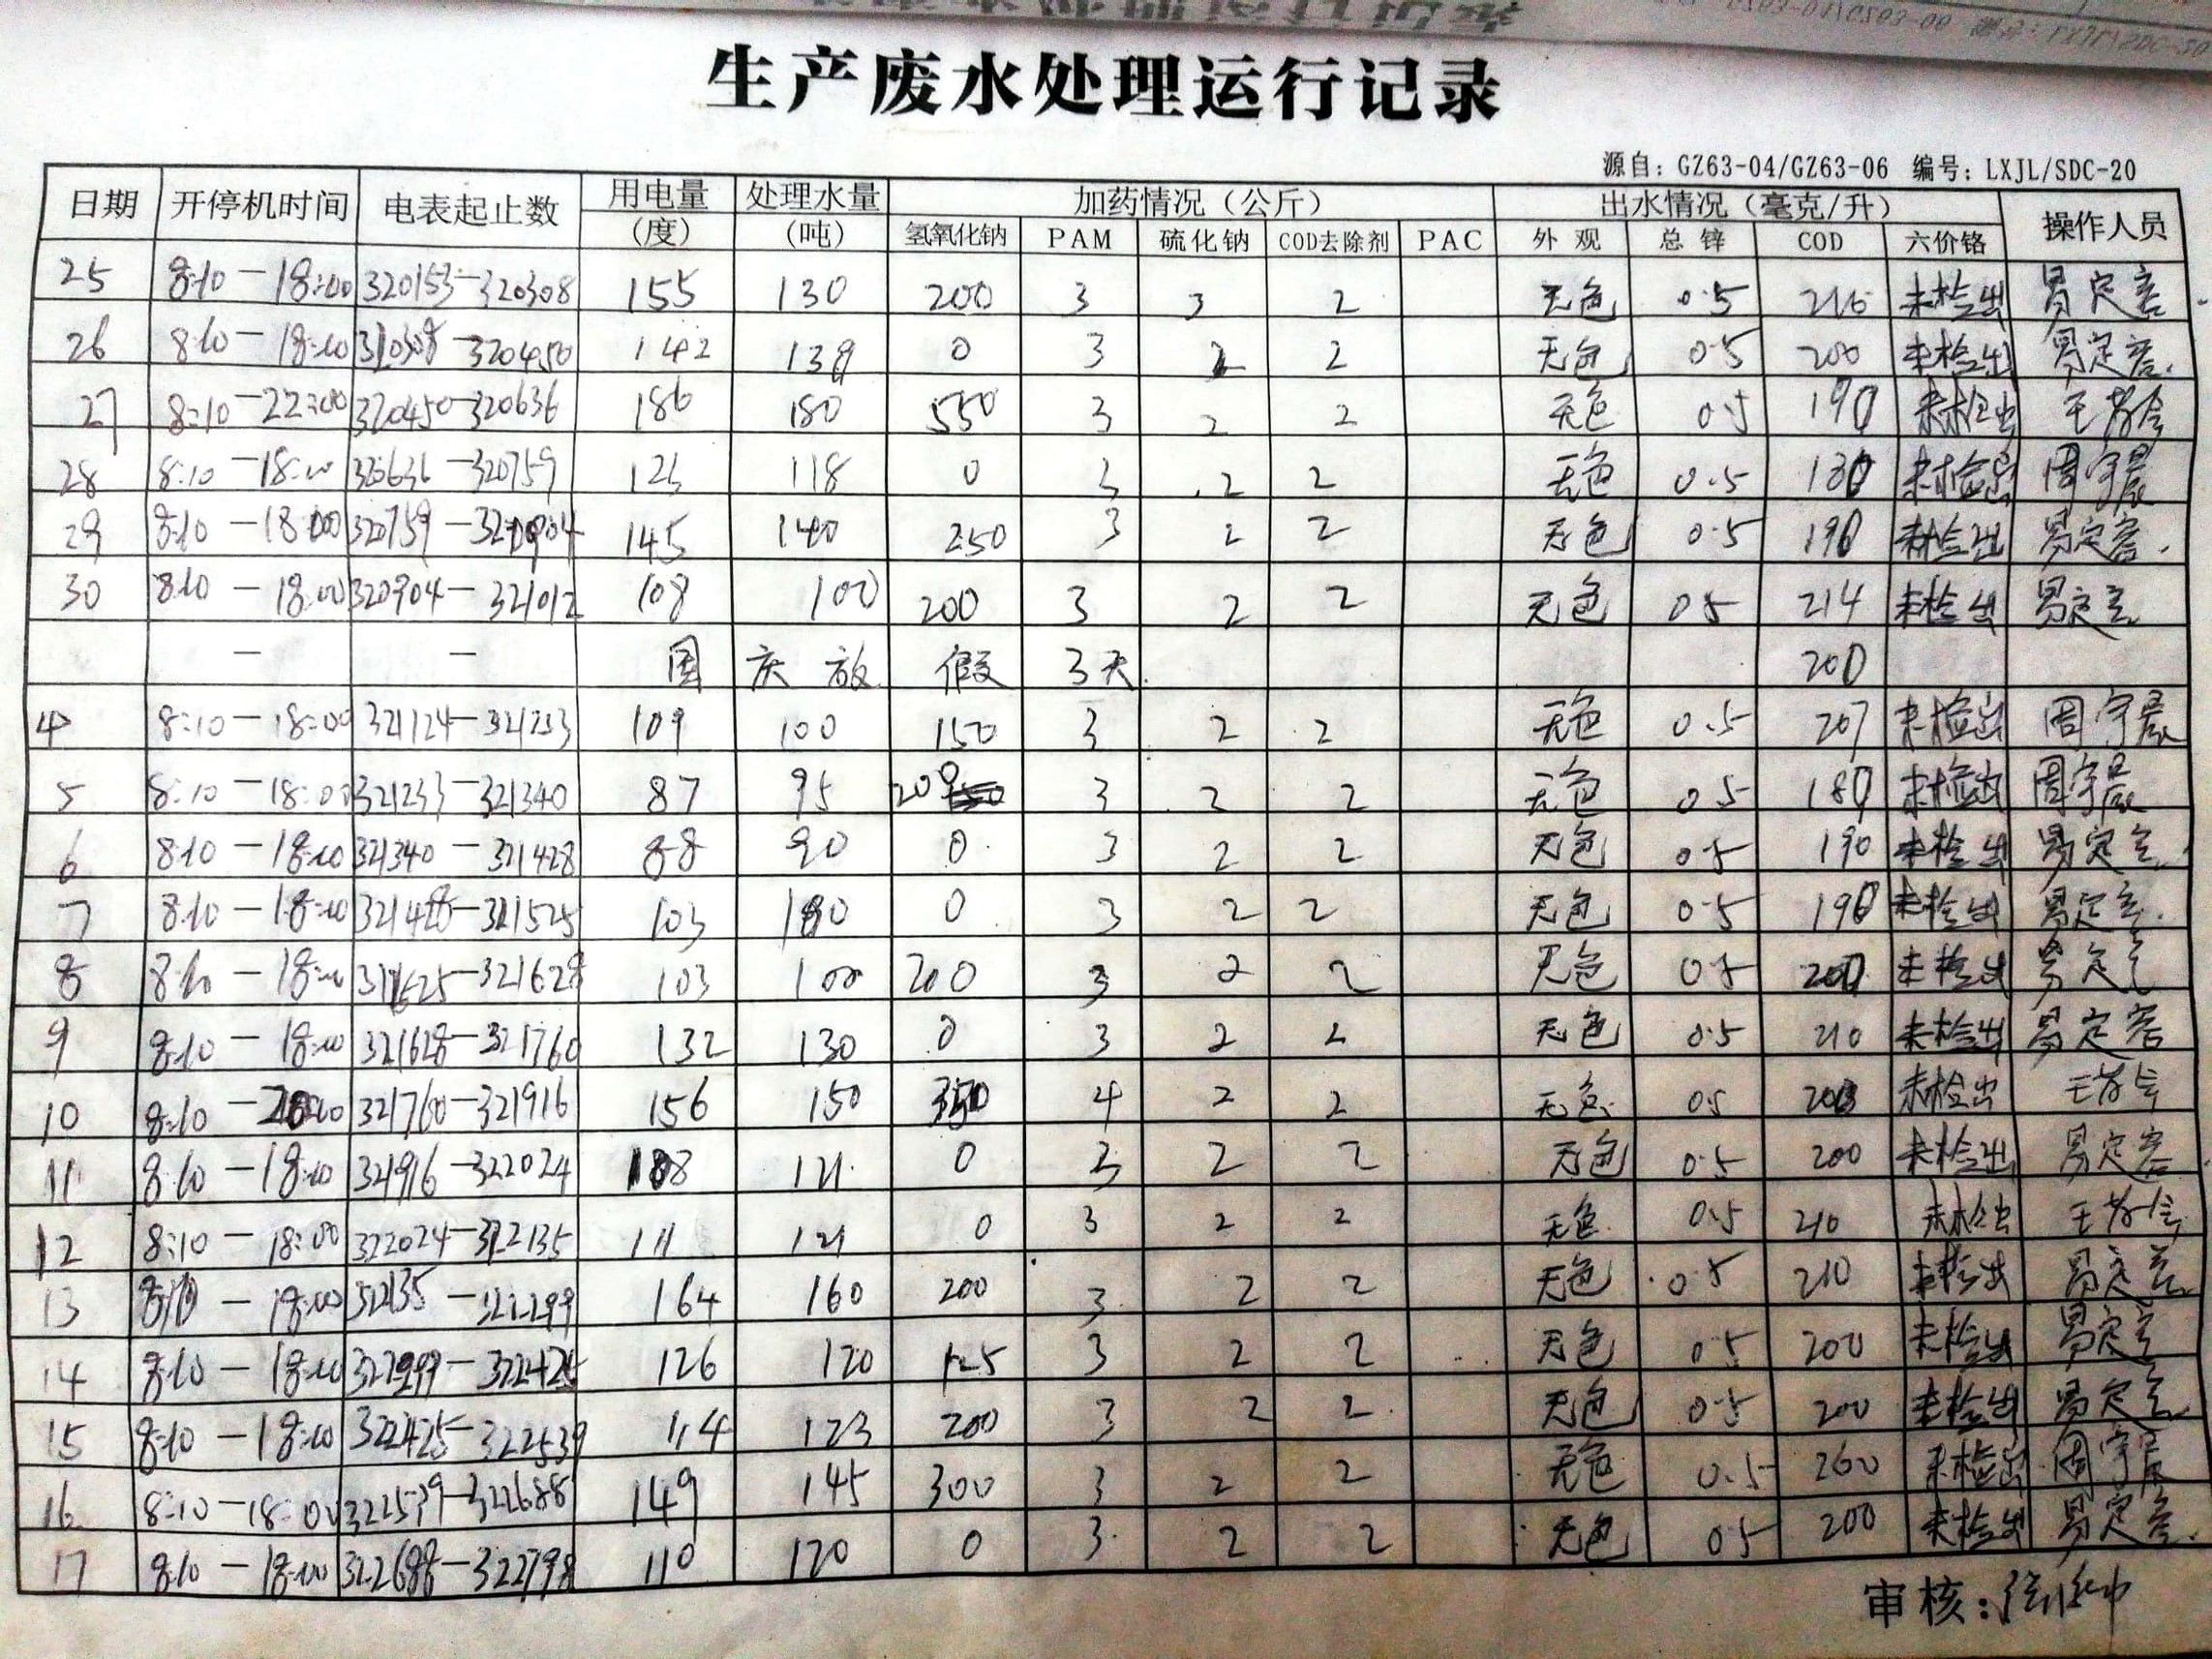 生产废水处理运行记录
源自：GZ63-04/GZ63-06 编号：LXJL/SDC-20
日期 开停机时间 电表起止数 用电量(度) 处理水量(吨) 加药情况（公斤） 出水情况（毫克/升） 操作人员
氢氧化钠 PAM 硫化钠 COD去除剂 PAC 外观 总锌 COD 六价铬
25 8:10-18:00 320153-320308 155 130 200 3 3 2 无色 0.5 210 未检出
26 8:10-18:00 320450 142 139 0 3 2 2 无色 0.5 200 未检出
27 8:10-22:00 320450-320636 186 180 550 3 2 2 无色 0.5 190 未检出
28 8:10-18:00 320636-320759 123 118 0 3 2 2 无色 0.5 180 未检出 周宇晨
29 8:10-18:00 320759-320904 145 140 250 3 2 2 无色 0.5 190 未检出
30 8:10-18:00 320904-321012 108 100 200 3 2 2 无色 0.5 214 未检出
- - 国庆放假3天 200
4 8:10-18:00 321124-321233 109 100 150 3 2 2 无色 0.5 207 未检出 周宇晨
5 8:10-18:00 321233-321340 87 95 200 3 2 2 无色 0.5 180 未检出 周宇晨
6 8:10-18:00 321340-321428 88 90 0 3 2 2 无色 0.5 190 未检出
7 8:10-18:00 321428-321525 103 100 0 3 2 2 无色 0.5 190 未检出
8 8:10-18:00 321628 103 100 200 3 2 2 无色 0.5 200 未检出
9 8:10-18:00 321628-321760 132 130 0 3 2 2 无色 0.5 210 未检出
10 8:10- 321760-321916 156 150 350 4 2 2 无色 0.5 未检出
11 8:10-18:00 321916-322024 108 121 0 3 2 2 无色 0.5 200 未检出
12 8:10-18:00 322024-322135 111 121 0 3 2 2 无色 0.5 210 未检出
13 8:10-18:00 164 160 200 3 2 2 无色 0.5 210 未检出
14 8:10-18:00 322299-322425 126 120 125 3 2 2 无色 0.5 200 未检出
15 8:10-18:00 322425-322539 114 123 200 3 2 2 无色 0.5 200 未检出
16 8:10-18:00 322539-322688 149 145 300 3 2 2 无色 0.5 200 未检出 周宇晨
17 8:10-18:00 322688-322798 110 120 0 3 2 2 无色 0.5 200 未检出
审核：